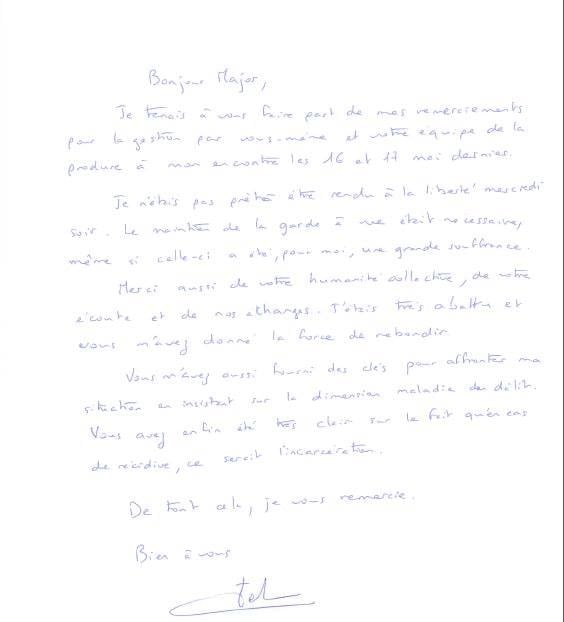 Bonjour Major,
Je tenais à vous faire part de mes remerciements
pour la gestion par vous-même et votre équipe de la
produre à mon encontre les 16 et 17 mai dernier.
Je n'étais pas prêt à être rendu à la liberté mercredi
soir. Le maintien de la garde à vue était nécessaire,
même si celle-ci a été, pour moi, une grande souffrance.
Merci aussi de votre humanité collective, de votre
écoute et de nos échanges. J'étais très abattu et
vous m'avez donné la force de rebondir.
Vous m'avez aussi fourni des clés pour affronter ma
situation en insistant sur la dimension maladie du délit.
Vous avez enfin été très clair sur le fait qu'en cas
de récidive, ce serait l'incarcération.
De tout cela, je vous remercie.
Bien à vous